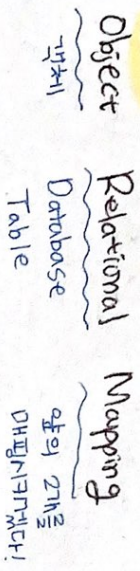 Object Relational Mapping
객체
Database
Table
앞의 2개를
매핑시키겠다!